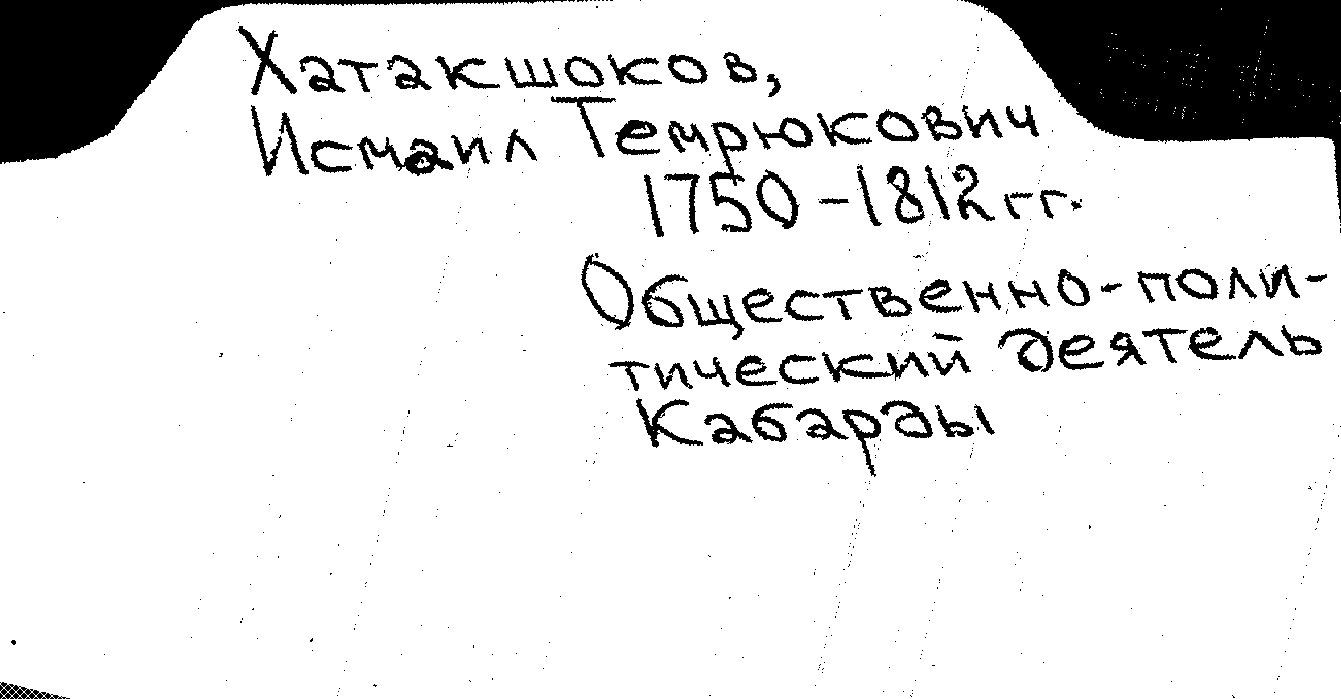 Хатакшоков,
Исмаил Темрюкович
1750-1812 гг.
Общественно-поли-
тический деятель
Кабарды